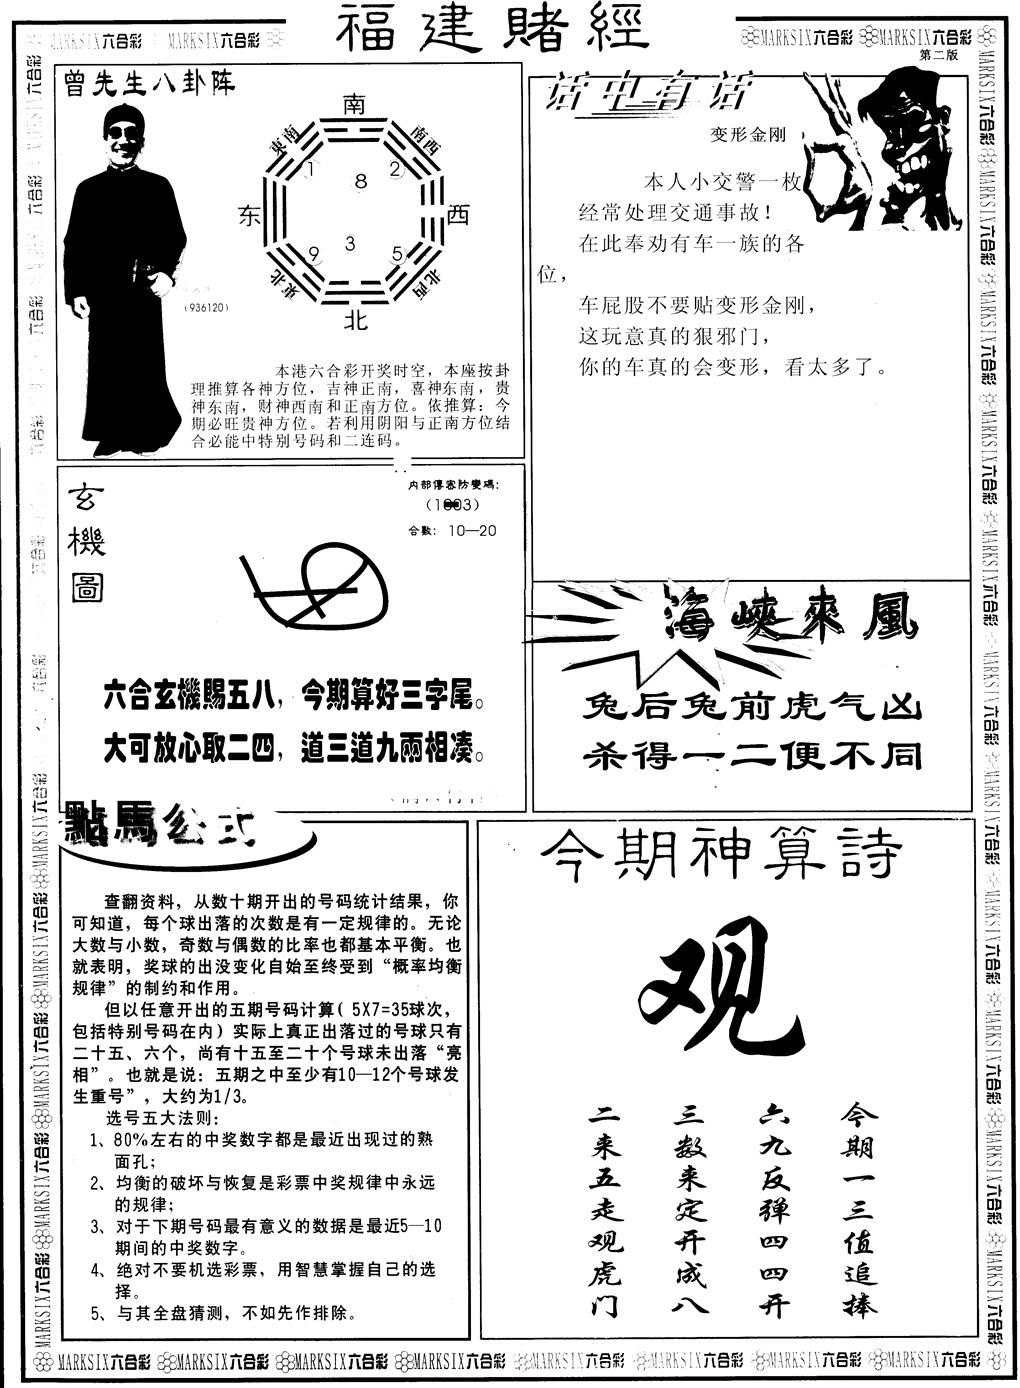 福建賭經
MARKSIX六合彩 MARKSIX六合彩
MARKSIX六合彩 MARKSIX六合彩
第二版
曾先生八卦阵
南
東南
南西
1
8
2
东
西
9
3
5
東北
北西
北
(936120)
本港六合彩开奖时空，本座按卦
理推算各神方位，吉神正南，喜神东南，贵
神东南，财神西南和正南方位。依推算：今
期必旺贵神方位。若利用阴阳与正南方位结
合必能中特别号码和二连码。
话中有话
变形金刚
本人小交警一枚
经常处理交通事故！
在此奉劝有车一族的各
位，
车屁股不要贴变形金刚，
这玩意真的狠邪门，
你的车真的会变形，看太多了。
玄機圖
内部傳密防變碼：
合數： 10—20
六合玄機賜五八，今期算好三字尾。
大可放心取二四，道三道九兩相凑。
海峽來風
兔后兔前虎气凶
杀得一二便不同
點馬公式
查翻资料，从数十期开出的号码统计结果，你
可知道，每个球出落的次数是有一定规律的。无论
大数与小数，奇数与偶数的比率也都基本平衡。也
就表明，奖球的出没变化自始至终受到“概率均衡
规律”的制约和作用。
但以任意开出的五期号码计算( 5X7=35球次，
包括特别号码在内）实际上真正出落过的号球只有
二十五、六个，尚有十五至二十个号球未出落“亮
相”。也就是说：五期之中至少有10—12个号球发
生重号”，大约为1/3。
选号五大法则：
1、80%左右的中奖数字都是最近出现过的熟
面孔；
2、均衡的破坏与恢复是彩票中奖规律中永远
的规律；
3、对于下期号码最有意义的数据是最近5—10
期间的中奖数字。
4、绝对不要机选彩票，用智慧掌握自己的选
择。
5、与其全盘猜测，不如先作排除。
今期神算詩
观
今期一三值追捧
六九反弹四四开
三数来定开成八
二来五走观虎门
MARKSIX六合彩 MARKSIX六合彩 MARKSIX六合彩 MARKSIX六合彩 MARKSIX六合彩 MARKSIX六合彩 MARKSIX六合彩 MARKSIX六合彩